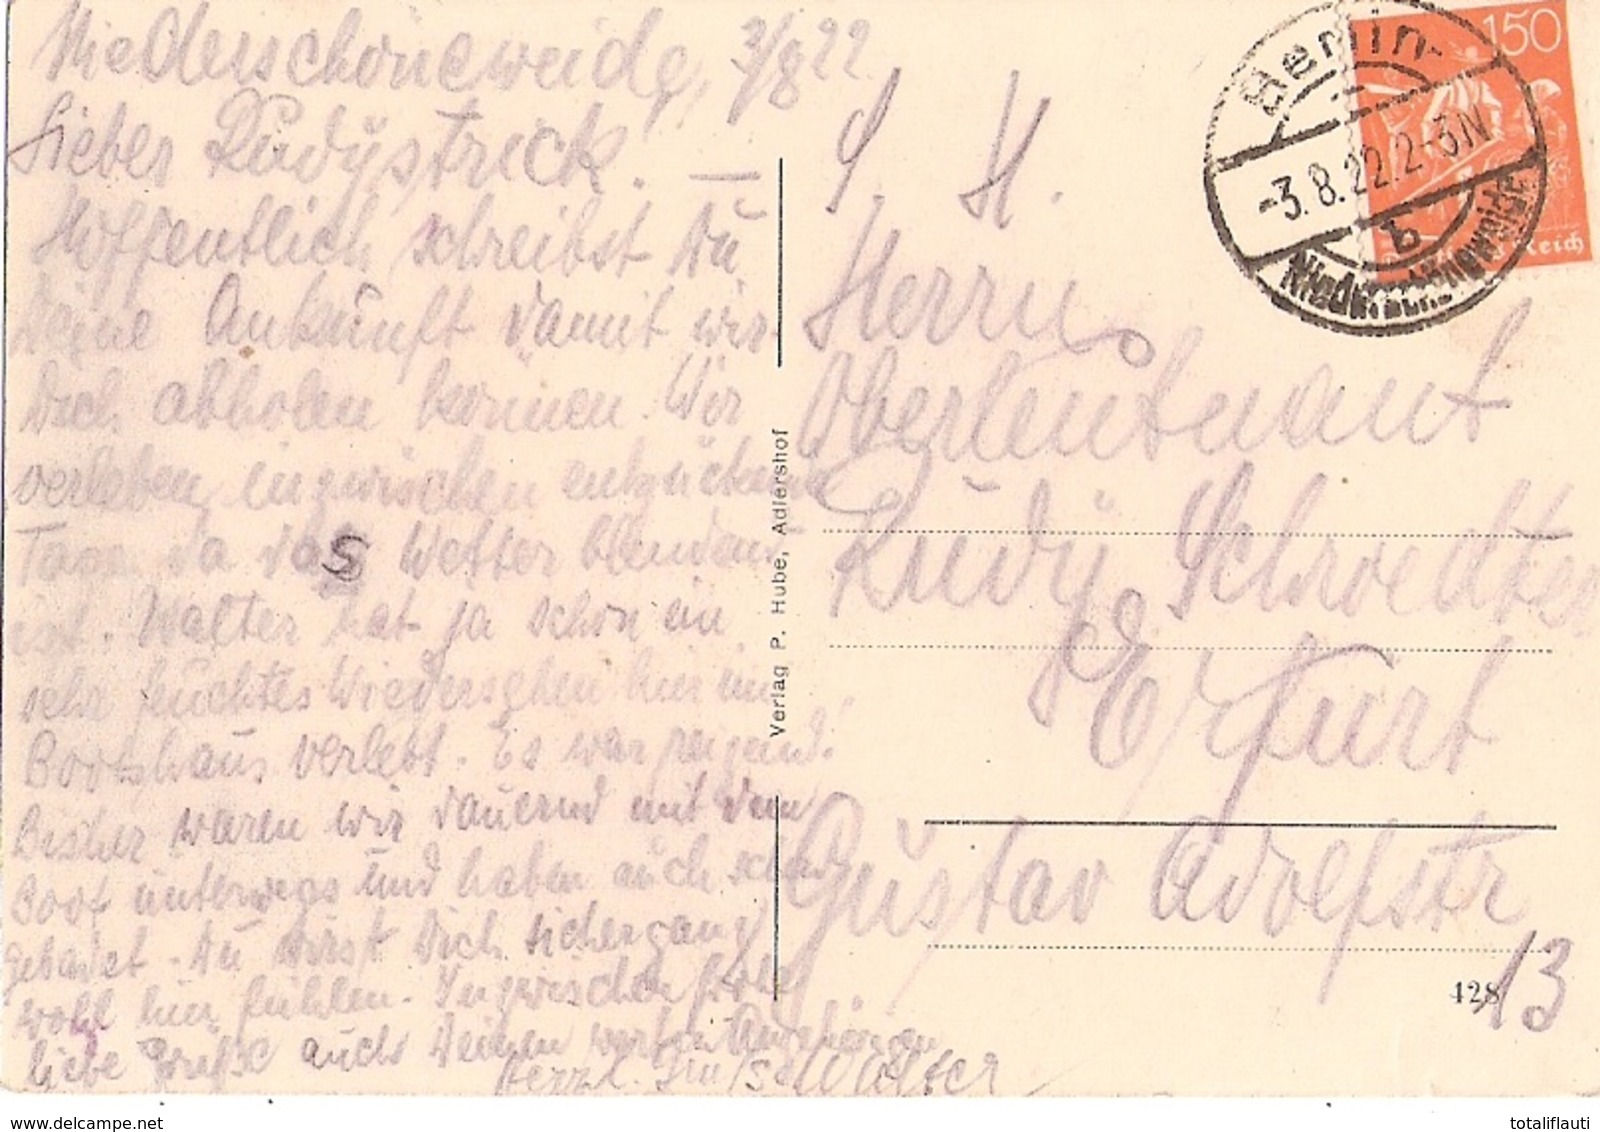 Niederschöneweide, 3/8 22
Lieber Rudystrick. —
Hoffentlich schreibst Du
Deine Ankunft damit wir
Dich abholen können. Wir
verleben inzwischen entzückende
Tage da das Wetter blendend
ist. Walter hat ja schon ein
sehr feuchtes Wiedersehen hier im
Bootshaus verlebt. Es war reizend!
Bisher waren wir dauernd mit dem
Boot unterwegs und haben auch schon
gebadet. Du wirst Dich sicher ganz
wohl hier fühlen. Inzwischen
liebe Grüße auch Deinen werten Angehörigen
Herzl. Walter
Verlag P. Hube, Adlershof
S. H.
Herrn
Oberleutnant
Rudy Schroedter
Erfurt
Gustav Adolfstr
13
428
150
Deutsches Reich
Berlin-
-3.8.22.2-3N
b
Niederschöneweide
totaliflauti
www.delcampe.net